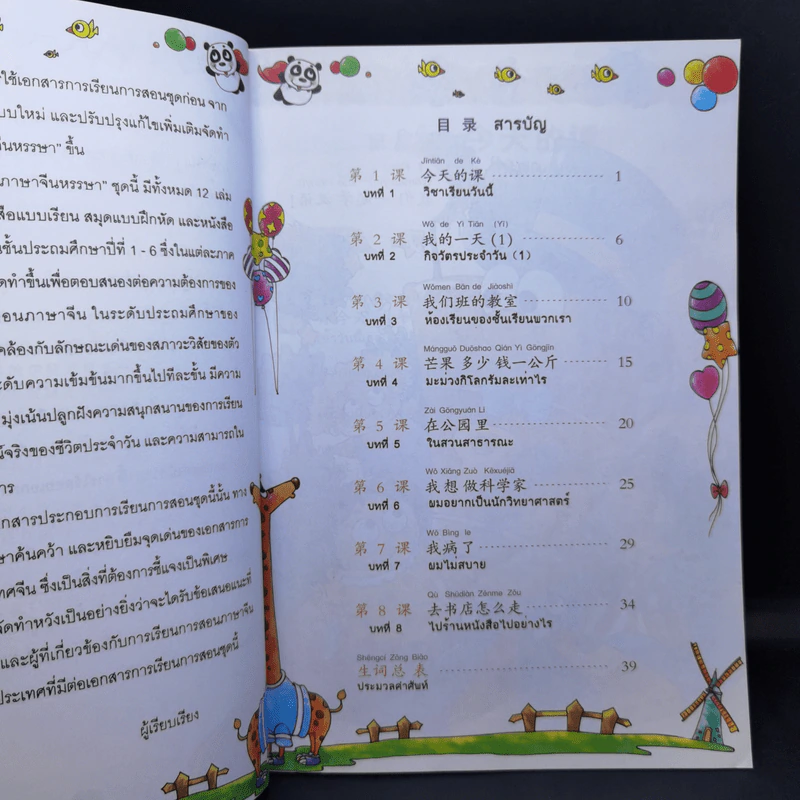 ใช้เอกสารการเรียนการสอนชุดก่อน จาก
แบบใหม่ และปรับปรุงแก้ไขเพิ่มเติมจัดทำ
จีนหรรษา" ขึ้น
ภาษาจีนหรรษา" ชุดนี้ มีทั้งหมด 12 เล่ม
สือแบบเรียน สมุดแบบฝึกหัด และหนังสือ
ชั้นประถมศึกษาปีที่ 1 - 6 ซึ่งในแต่ละภาค
จัดทำขึ้นเพื่อตอบสนองต่อความต้องการของ
สอนภาษาจีน ในระดับประถมศึกษาของ
คล้องกับลักษณะเด่นของสภาวะวิสัยของตัว
ระดับความเข้มข้นมากขึ้นไปทีละขั้น มีความ
มุ่งเน้นปลูกฝังความสนุกสนานของการเรียน
จริงของชีวิตประจำวัน และความสามารถใน
การ
อกสารประกอบการเรียนการสอนชุดนี้นั้น ทาง
ษาค้นคว้า และหยิบยืมจุดเด่นของเอกสารการ
ทศจีน ซึ่งเป็นสิ่งที่ต้องการชี้แจงเป็นพิเศษ
จัดทำหวังเป็นอย่างยิ่งว่าจะได้รับข้อเสนอแนะที่
และผู้ที่เกี่ยวข้องกับการเรียนการสอนภาษาจีน
ประเทศที่มีต่อเอกสารการเรียนการสอนชุดนี้
ผู้เรียบเรียง
目 录 สารบัญ
Jīntiān de Kè
第 1 课 今天的课 1
บทที่ 1 วิชาเรียนวันนี้
Wǒ de Yì Tiān (Yī)
第 2 课 我的一天(1) 6
บทที่ 2 กิจวัตรประจำวัน (1)
Wǒmen Bān de Jiàoshì
第 3 课 我们班的教室 10
บทที่ 3 ห้องเรียนของชั้นเรียนพวกเรา
Mángguǒ Duōshao Qián Yì Gōngjīn
第 4 课 芒果多少钱一公斤 15
บทที่ 4 มะม่วงกิโลกรัมละเท่าไร
Zài Gōngyuán Li
第 5 课 在公园里 20
บทที่ 5 ในสวนสาธารณะ
Wǒ Xiǎng Zuò Kēxuéjiā
第 6 课 我想做科学家 25
บทที่ 6 ผมอยากเป็นนักวิทยาศาสตร์
Wǒ Bìng le
第 7 课 我病了 29
บทที่ 7 ผมไม่สบาย
Qù Shūdiàn Zěnme Zǒu
第 8 课 去书店怎么走 34
บทที่ 8 ไปร้านหนังสือไปอย่างไร
Shēngcí Zǒng Biǎo
生词总表 39
ประมวลคำศัพท์